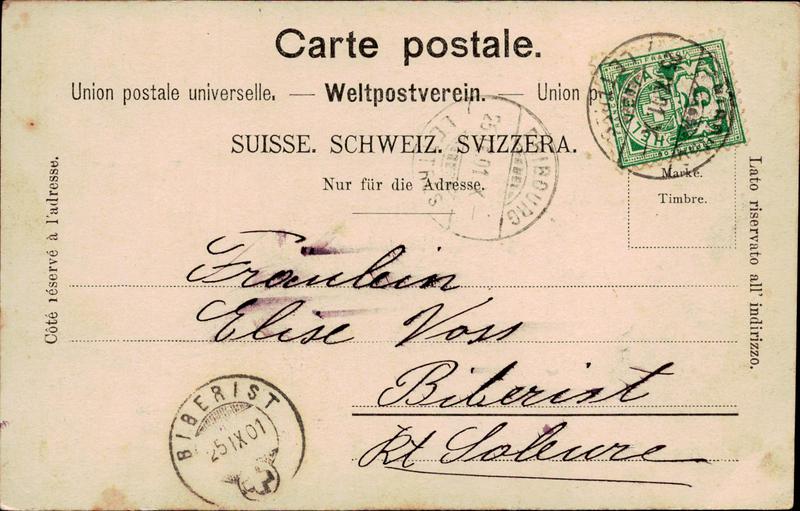 Carte postale.
Union postale universelle. — Weltpostverein. — Union
SUISSE. SCHWEIZ. SVIZZERA.
Nur für die Adresse.
Marke.
Timbre.
Côté réservé à l'adresse.
Lato riservato all' indirizzo.
FRIBOURG
LETTRES
Fräulein
Elise Voss
Biberist
Kt Soleure
BIBERIST
25 IX 01